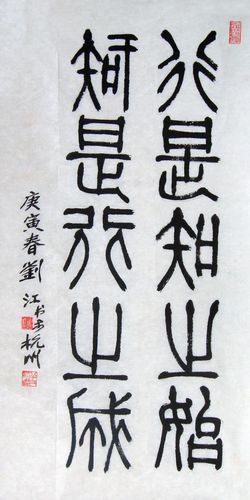 行是知之始
知是行之成
庚寅春劉江书於杭州